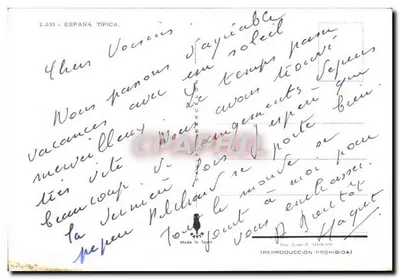 2.033 - ESPAÑA TIPICA.
Chers Voisins.
Nous passons d'agréable
vacances avec un soleil
merveilleux. Le temps passe
très vite. Nous avons trouvé
beaucoup de changements depuis
la dernière fois. J'espère que
pepere se porte bien.
Tout le monde se
joint à moi pour
vous embrasser.
A Bientôt
Made in Spain
(REPRODUCCION PROHIBIDA)